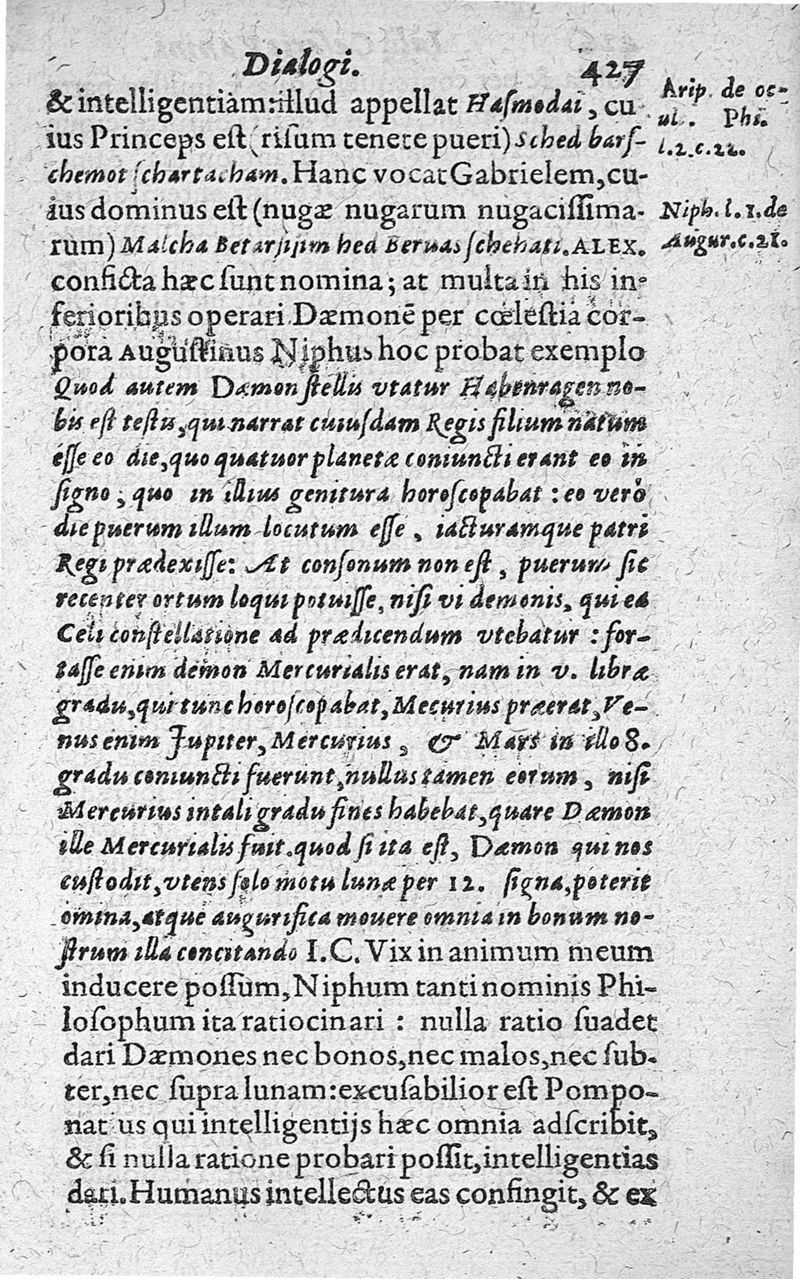 Dialogi. 427
& intelligentiam: illud appellat Haſmodai, cu
ius Princeps eſt (riſum tenete pueri) Sched barſ-
chemot ſchartacham. Hanc vocat Gabrielem, cu-
ius dominus eſt (nugæ nugarum nugaciſſima-
rum) Malcha Betarſiſim hed Beruas ſchehati. ALEX.
conficta hæc ſunt nomina; at multa in his in-
ferioribus operari Dæmonē per cœleſtia cor-
pora Auguſtinus Niphus hoc probat exemplo
Quod autem Dæmon ſtellis vtatur Habenragen no-
bis eſt teſtis, qui narrat cuiuſdam Regis filium natum
eſſe eo die, quo quatuor planetæ coniuncti erant eo in
ſigno, quo in illius genitura horoſcopabat: eo verò
die puerum illum locutum eſſe, iacturamque patri
Regi prædexiſſe: At conſonum non eſt, puerum ſic
recenter ortum loqui potuiſſe, niſi vi demonis, qui ea
Celi conſtellatione ad prædicendum vtebatur: for-
taſſe enim demon Mercurialis erat, nam in v. libræ
gradu, qui tunc horoſcopabat, Mecurius præerat, Ve-
nus enim Jupiter, Mercurius, & Mars in illo 8.
gradu coniuncti fuerunt, nullus tamen eorum, niſi
Mercurius in tali gradu fines habebat, quare Dæmon
ille Mercurialis fuit. quod ſi ita eſt, Dæmon qui nos
cuſtodit, vtens ſolo motu lunæ per 12. ſigna, poterit
omina, atque augurifica mouere omnia in bonum no-
ſtrum illa concitando I. C. Vix in animum meum
inducere poſſum, Niphum tanti nominis Phi-
loſophum ita ratiocinari: nulla ratio ſuadet
dari Dæmones nec bonos, nec malos, nec ſub-
ter, nec ſupra lunam: excuſabilior eſt Pompo-
natius qui intelligentijs hæc omnia adſcribit,
& ſi nulla ratione probari poſſit, intelligentias
dari. Humanus intellectus eas confingit, & ex
Arip. de oc-
ul. Phi.
l. 2. c. 22.
Niph. l. 1. de
Augur. c. 21.